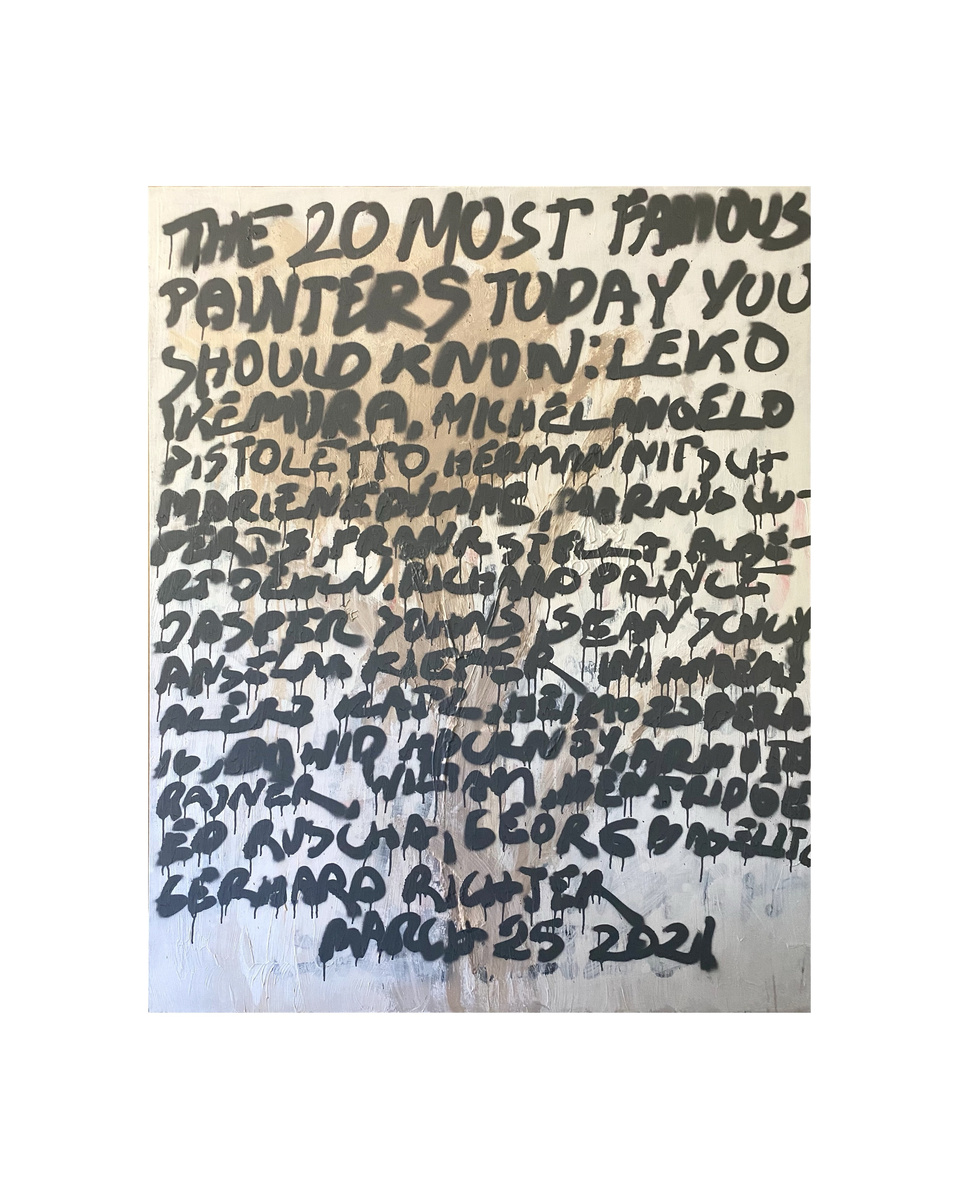 THE 20 MOST FAMOUS
PAINTERS TODAY YOU
SHOULD KNOW: LEIKO
IKEMURA, MICHELANGELO
PISTOLETTO, HERMAN NITSCH
MARLENE DUMAS, MARKUS LU-
PERTS, FRANK STELLA, ALBE-
RT OEHLN, RICHARD PRINCE
JASPER JOHNS, SEAN SCULLY
ANSELM KIEFER,
ALEX KATZ,
ARNULF
RAINER, WILLIAM KENTRIDGE
ED RUSCHA, GEORG BASELITZ
GERHARD RICHTER
MARCH 25 2021